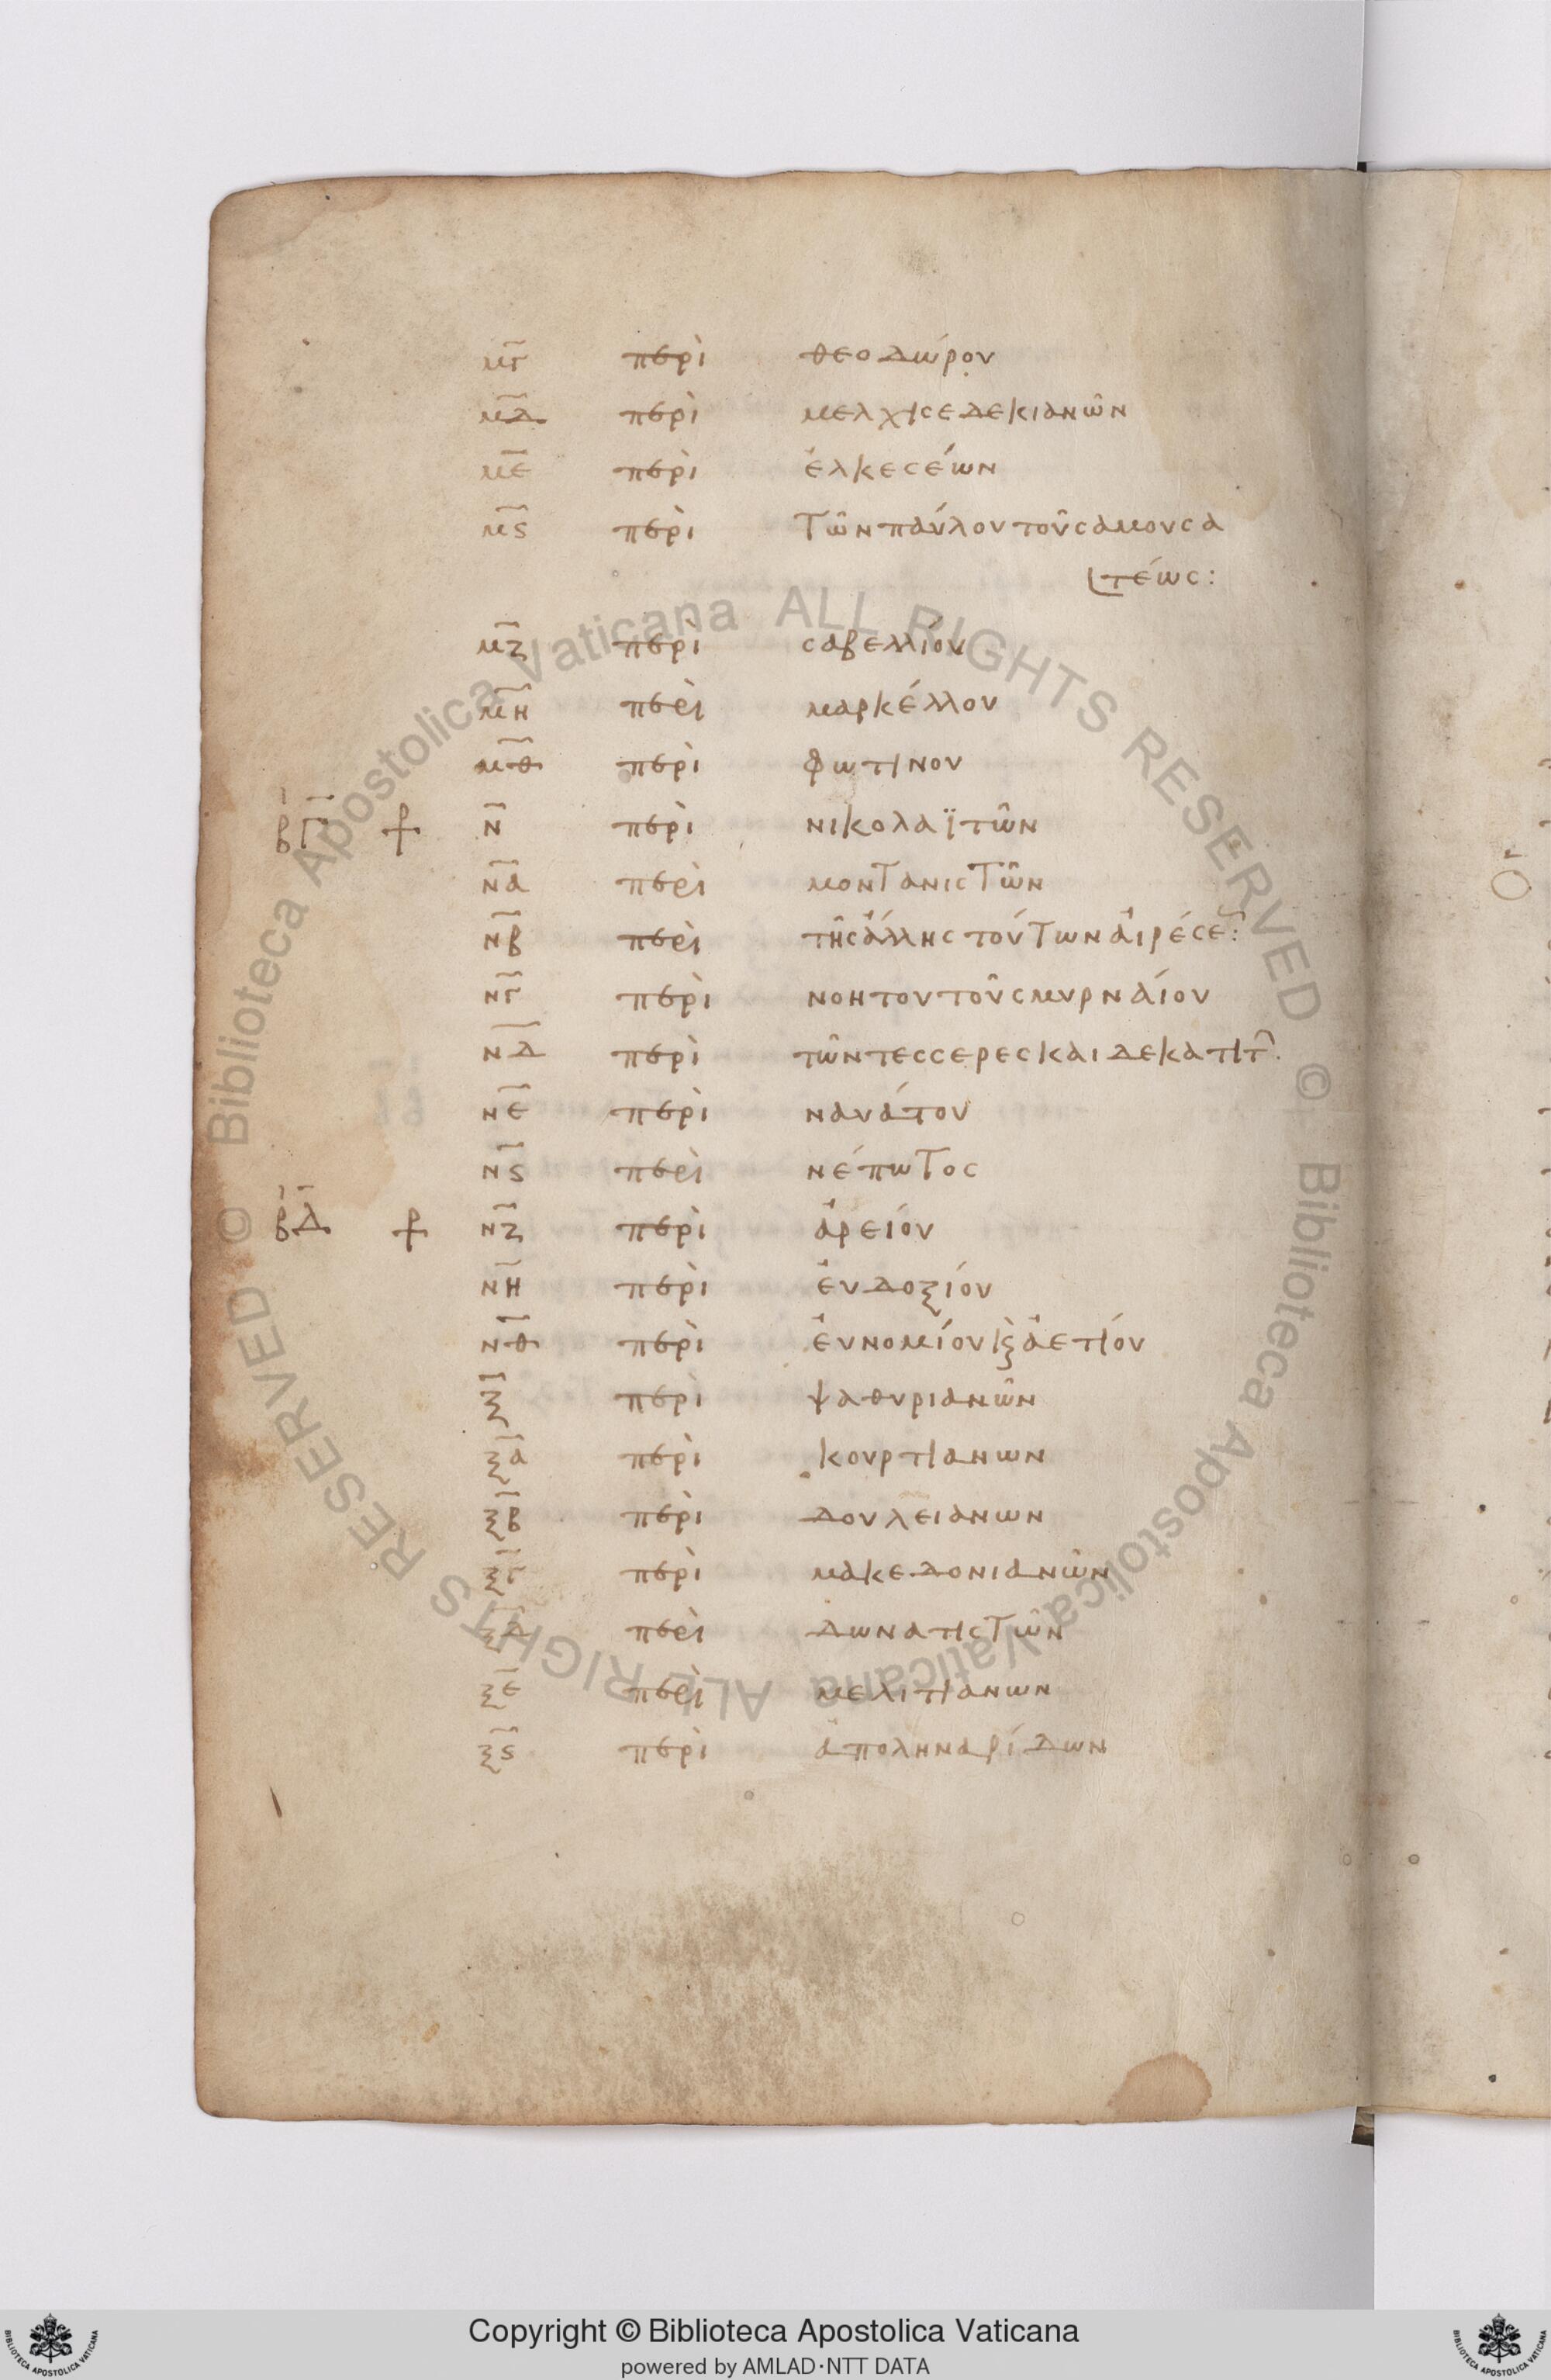 μγ περὶ θεοδώρου
μδ περὶ μελχισεδεκιανῶν
με περὶ ἑλκεσέων
μς περὶ Τῶν παύλου τοῦ σαμουσα
τέως:
μζ περὶ σαβελλίου
μη περὶ μαρκέλλου
μθ περὶ φωτινου
βγ ν περὶ νικολαϊτῶν
να περὶ μονΤανισΤῶν
νβ περὶ τῆς ἄλλης τούΤων αἱρέσε:
νγ περὶ νοητου τοῦ σμυρναίου
νδ περὶ τῶν τεσσερεσκαιδεκατιτ
νε περὶ ναυάτου
νς περὶ νέπωΤος
βδ νζ περὶ ἀρείου
νη περὶ ἐυδοξίου
νθ περὶ ἐυνομίου κ ἀετίου
ξ περὶ ψαθυριανῶν
ξα περὶ κουρτιανων
ξβ περὶ δουλειανων
ξγ περὶ μακεδονιανῶν
ξδ περὶ δωνατισΤῶν
ξε περὶ μελιτιανων
ξς περὶ ἀποληναρίδων
Copyright © Biblioteca Apostolica Vaticana
powered by AMLAD·NTT DATA
© Biblioteca Apostolica Vaticana ALL RIGHTS RESERVED © Biblioteca Apostolica Vaticana ALL RIGHTS RESERVED